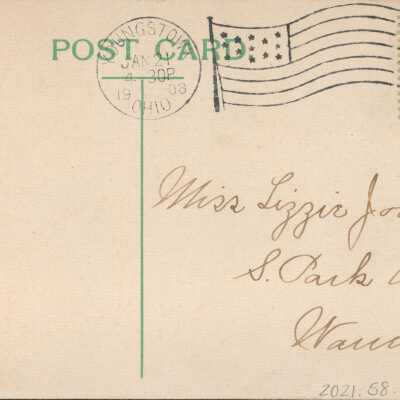 POST CARD
YOUNGSTOWN
JAN 21
4 30P
1908
OHIO
Miss Lizzie Jo
S. Park
2021.58.